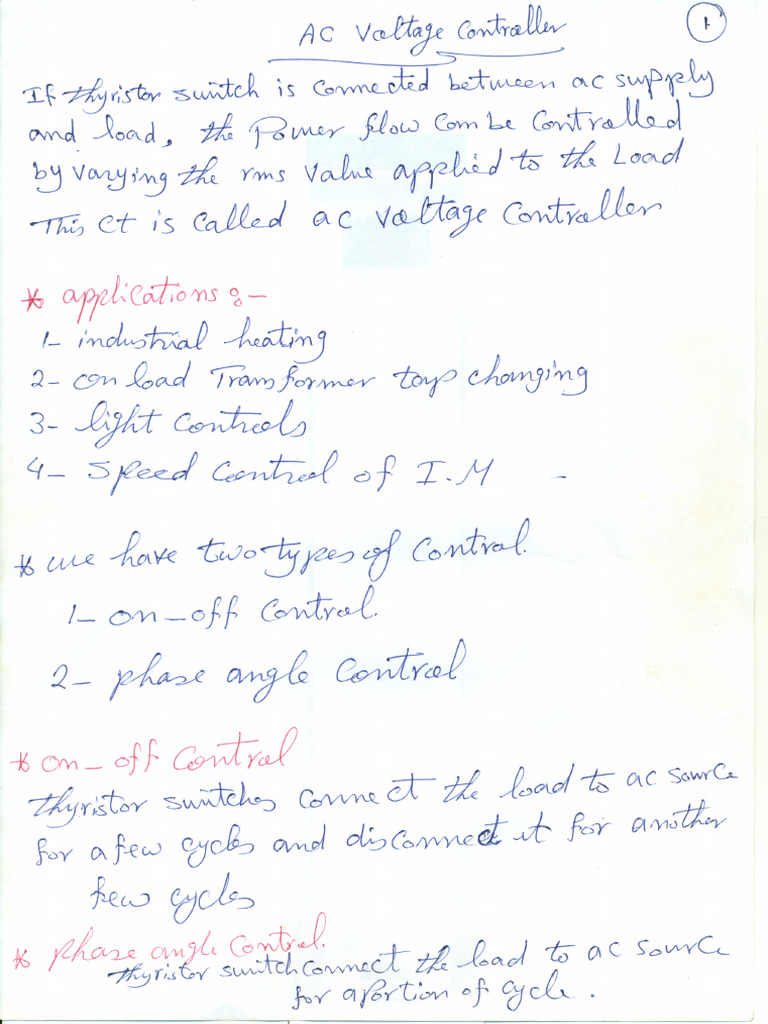 AC Voltage Controller
1
If thyristor switch is connected between ac supply
and load, the Power flow can be controlled
by varying the rms value applied to the Load
This ct is called ac voltage controller
* applications :-
1- industrial heating
2- on load Transformer tap changing
3- light controls
4- speed control of I.M -
* we have two types of control.
1- on-off control.
2- phase angle control
* on-off control
thyristor switches connect the load to ac source
for a few cycles and disconnect it for another
few cycles
* phase angle control.
thyristor switch connect the load to ac source
for a portion of cycle.